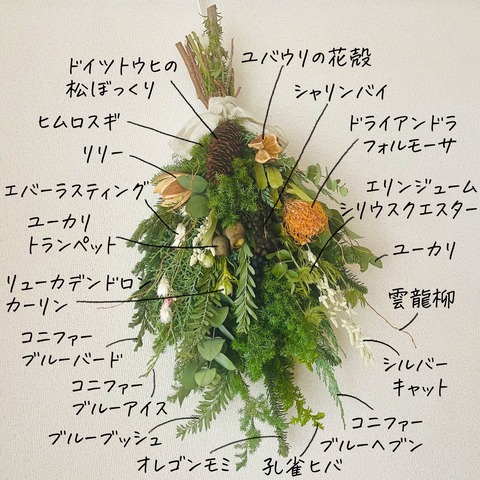 ドイツトウヒの
松ぼっくり
ユバウリの花殻
シャリンバイ
ヒムロスギ
ドライアンドラ
フォルモーサ
リリー
エバーラスティング
エリンジューム
シリウスクエスター
ユーカリ
トランペット
ユーカリ
リューカデンドロン
カーリン
雲龍柳
コニファー
ブルーバード
シルバー
キャット
コニファー
ブルーアイス
コニファー
ブルーヘブン
ブルーブッシュ
オレゴンモミ
孔雀ヒバ